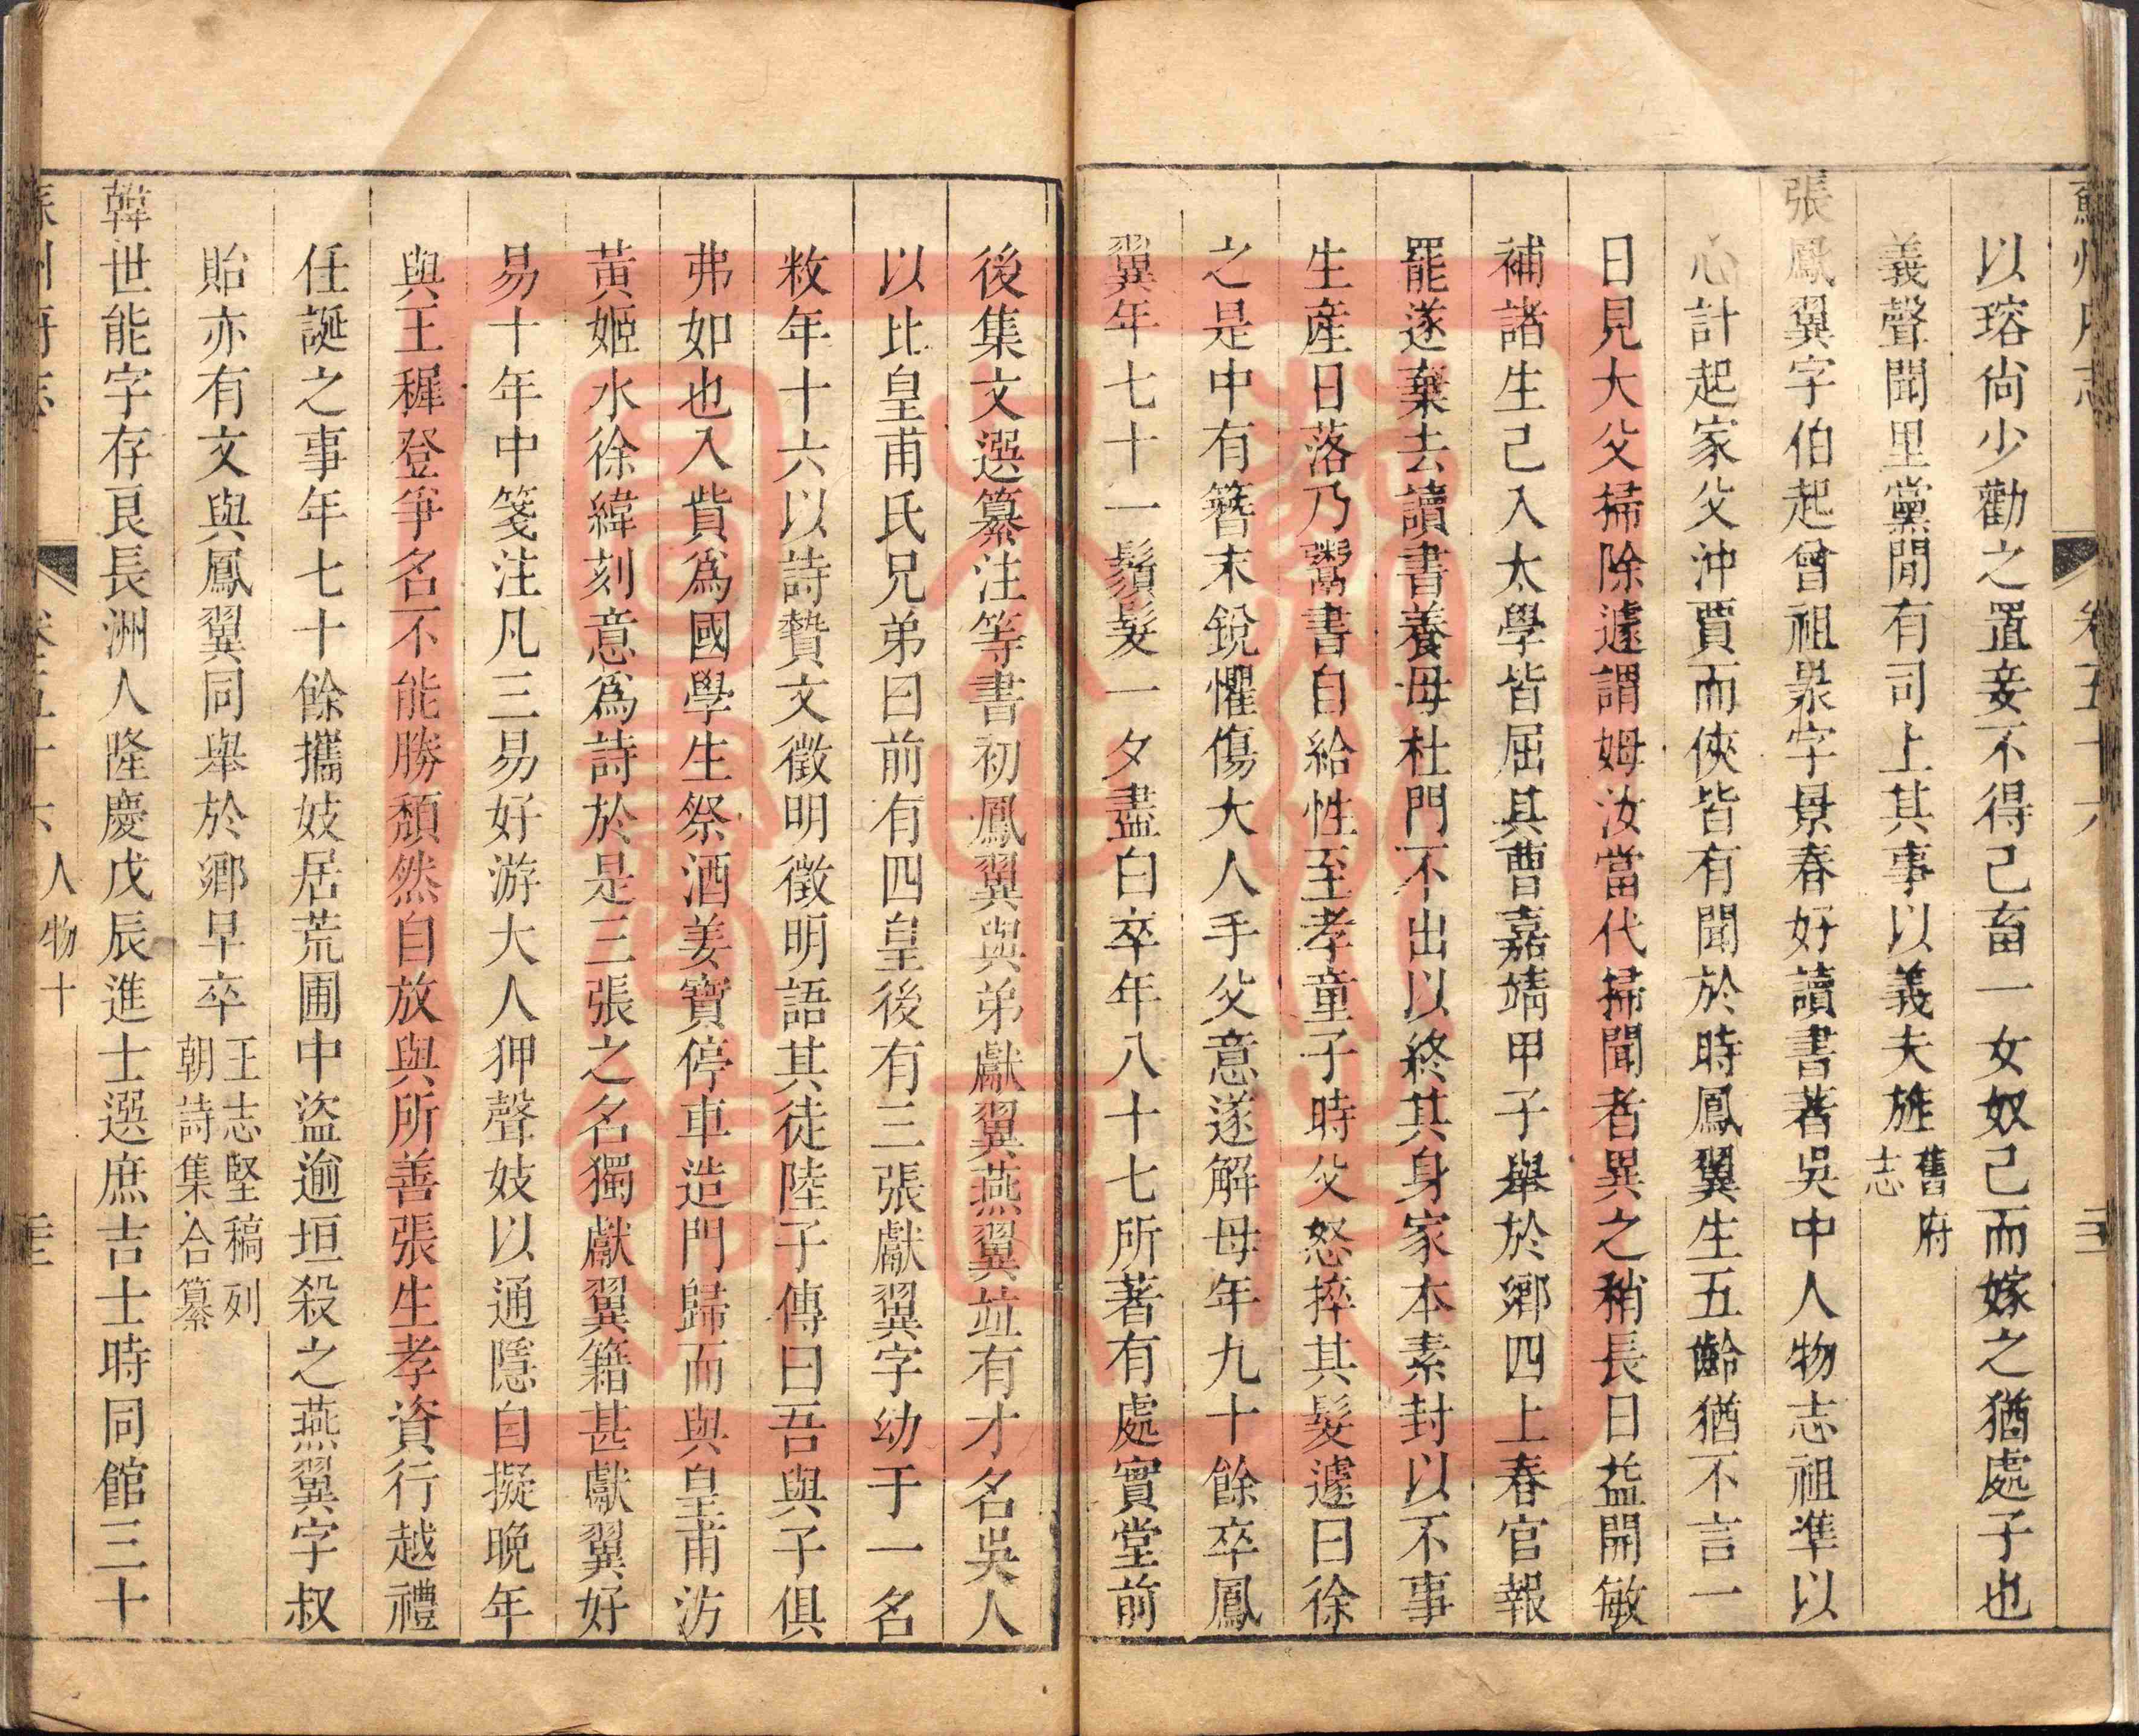 蘇州府志 卷五十六
以瑢尙少勸之置妾不得已畜一女奴已而嫁之猶處子也
義聲聞里黨閒有司上其事以義夫旌舊府志
張鳳翼字伯起曾祖㬌字景春好讀書著吳中人物志祖準以
心計起家父沖賈而俠皆有聞於時鳳翼生五齡猶不言一
日見大父掃除遽謂姆汝當代掃聞者異之稍長日益開敏
補諸生已入太學皆屈其曹嘉靖甲子舉於鄉四上春官報
罷遂棄去讀書養母杜門不出以終其身家本素封以不事
生產日落乃鬻書自給性至孝童子時父怒捽其髮遽曰徐
之是中有簪末銳懼傷大人手父意遂解母年九十餘卒鳳
翼年七十一鬚髮一夕盡白卒年八十七所著有處實堂前
後集文選纂注等書初鳳翼與弟獻翼燕翼竝有才名吳人
以比皇甫氏兄弟曰前有四皇後有三張獻翼字幼于一名
敉年十六以詩贄文徵明徵明語其徒陸子傳曰吾與子俱
弗如也入貲爲國學生祭酒姜寶停車造門歸而與皇甫汸
黃姬水徐緯刻意爲詩於是三張之名獨獻翼籍甚獻翼好
易十年中箋注凡三易好游大人狎聲妓以通隱自擬晚年
與王穉登爭名不能勝頹然自放與所善張生孝資行越禮
任誕之事年七十餘攜妓居荒圃中盜逾垣殺之燕翼字叔
貽亦有文與鳳翼同舉於鄉早卒王志堅稿列朝詩集合纂
韓世能字存良長洲人隆慶戊辰進士選庶吉士時同館三十
蘇州府志 卷五十六 人物十